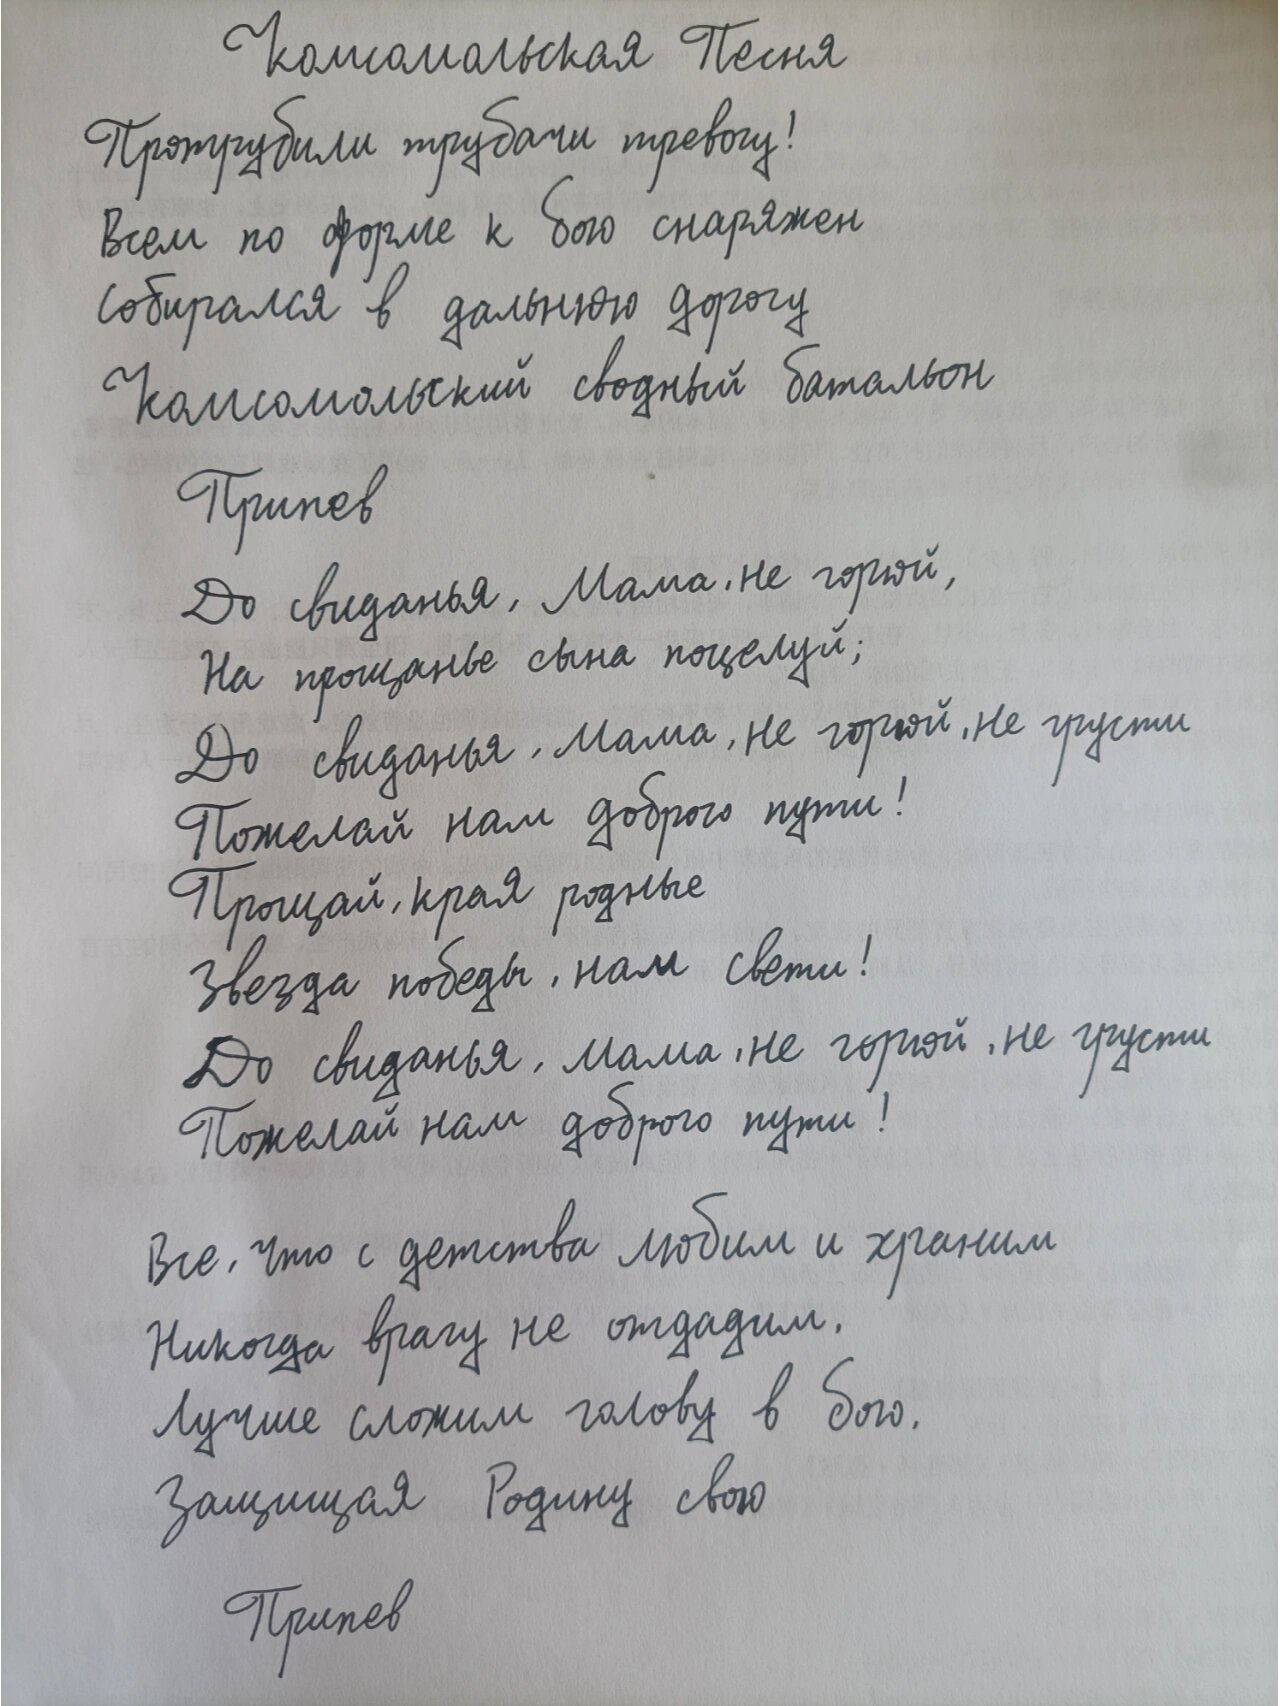 Комсомольская Песня
Протрубили трубачи тревогу!
Всем по форме к бою снаряжен
Собирался в дальнюю дорогу
Комсомольский сводный батальон
Припев
До свиданья, Мама, не горюй,
На прощанье сына поцелуй;
До свиданья, Мама, не горюй, не грусти
Пожелай нам доброго пути!
Прощай, края родные
Звезда победы, нам свети!
До свиданья, Мама, не горюй, не грусти
Пожелай нам доброго пути!
Все, что с детства любим и храним
Никогда врагу не отдадим,
Лучше сложим голову в бою,
Защищая Родину свою
Припев